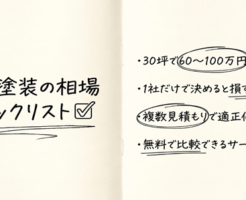 塗装の相場
ックリスト
・30坪で60〜100万円
・1社だけで決めると損す
・複数見積もりで適正
・無料で比較できるサー